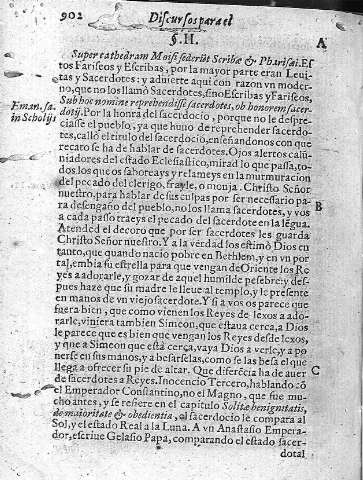 902
Discursos para el
§. II.
A
Super cathedram Moisi sederũt Scribæ & Pharisæi. Es
tos Fariseos y Escribas, por la mayor parte eran Leui-
tas y Sacerdotes: y aduierte aqui con razon vn moder-
no, que no los llamò Sacerdotes, sino Escribas y Fariseos,
Eman. sa.
in Scholijs
Sub hoc nomine reprehendisse sacerdotes, ob honorem sacer-
dotij. Por la honra del sacerdocio, porque no le despre-
ciasse el pueblo, ya que huuo de reprehender sacerdo-
tes, callò el titulo del sacerdocio, enseñandonos con que
recato se ha de hablar de sacerdotes. Ojos alertos calũ-
niadores del estado Eclesiastico, mirad lo que passa, to-
dos los que os saboreays y relameys en la murmuracion
del pecado del clerigo, frayle, o monja. Christo Señor
nuestro, para hablar de sus culpas por ser necessario pa-
B
ra desengaño del pueblo, no los llama sacerdotes, y vos
a cada passo traeys el pecado del sacerdote en la lẽgua.
Atended el decoro que por ser sacerdotes les guarda
Christo Señor nuestro. Y a la verdad los estimò Dios en
tanto, que quando nacio pobre en Bethlem, y en vn por
tal, embia su estrella para que vengan de Oriente los Re
yes a adorarle, y gozar de aquel humilde pesebre: y des-
pues haze que su madre le lleue al templo, y le presente
en manos de vn viejo sacerdote. Y si a vos os parece que
fuera bien, que como vienen los Reyes de lexos a ado-
rarle, viniera tambien Simeon, que estaua cerca, a Dios
le parece que es bien que vengan los Reyes desde lexos,
y que a Simeon que està cerca, vaya Dios a verle, y a po
nerse en sus manos, y a besarselas, como se las besa el que
C
llega a ofrecer su pie de altar. Que diferẽcia ha de auer
de sacerdotes a Reyes, Inocencio Tercero, hablando cõ
el Emperador Constantino, no el Magno, que fue mu-
cho antes, y se refiere en el capitulo Solitæ benignitatis,
de maioritate & obedientia, al sacerdocio le compara al
Sol, y el estado Real a la Luna. A vn Anastasio Empera-
dor, escriue Gelasio Papa, comparando el estado sacer-
dotal